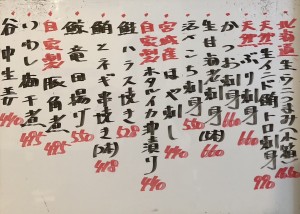 北海道生ウニつまみ小箱
天然生インド鮪トロ刺身 990
天然ぶり刺身 660
かつお刺身 660
生甘海老刺身 660
活つぶ刺身 550
宮城産ほや刺し 440
自家製ホタルイカ沖漬り 440
鮭ハラス焼き 528
鮪とネギ串焼き(2本) 418
鮫竜田揚り 550
自家製豚角煮 495
いわし梅干煮 495
谷中生姜 440